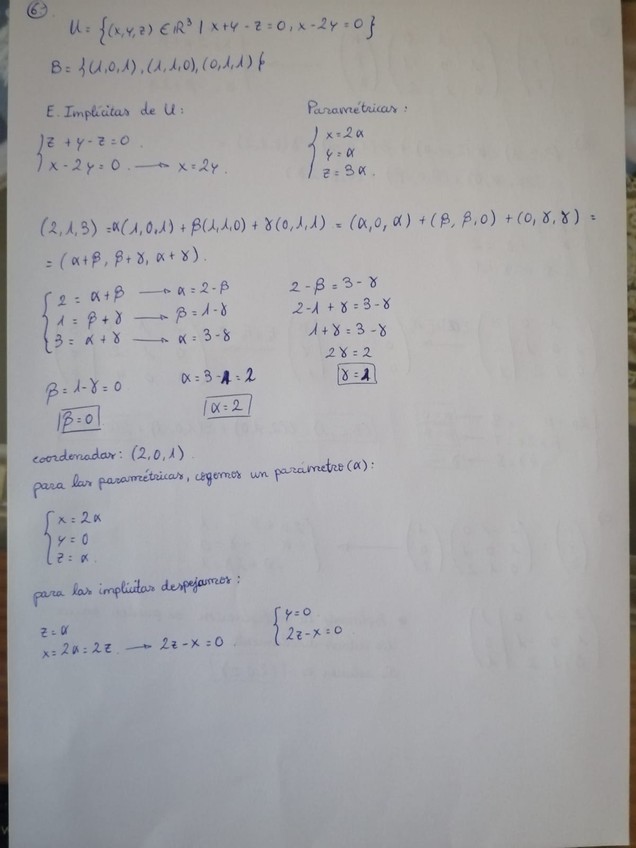 6.
U = {(x,y,z) ∈ ℝ³ / x+y-z=0, x-2y=0}
B = {(1,0,1), (1,1,0), (0,1,1)}
E. Implícitas de U:
z + y - z = 0.
x - 2y = 0. → x = 2y.
Paramétricas:
x = 2α
y = α
z = 3α.
(2,1,3) = α(1,0,1) + β(1,1,0) + γ(0,1,1) = (α,0,α) + (β,β,0) + (0,γ,γ) =
= (α+β, β+γ, α+γ).
2 = α+β → α = 2-β
1 = β+γ → β = 1-γ
3 = α+γ → α = 3-γ
2-β = 3-γ
2-1+γ = 3-γ
1+γ = 3-γ
2γ = 2
γ = 1
β = 1-γ = 0
β = 0
α = 3-1 = 2
α = 2
coordenadas: (2,0,1).
para las paramétricas, cogemos un parámetro (α):
x = 2α
y = 0
z = α.
para las implícitas despejamos:
z = α
x = 2α = 2z. → 2z - x = 0.
y = 0
2z - x = 0